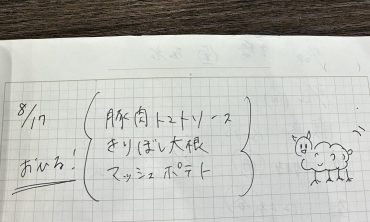 8/17
おひる!
豚肉トマトソース
きりぼし大根
マッシュポテト